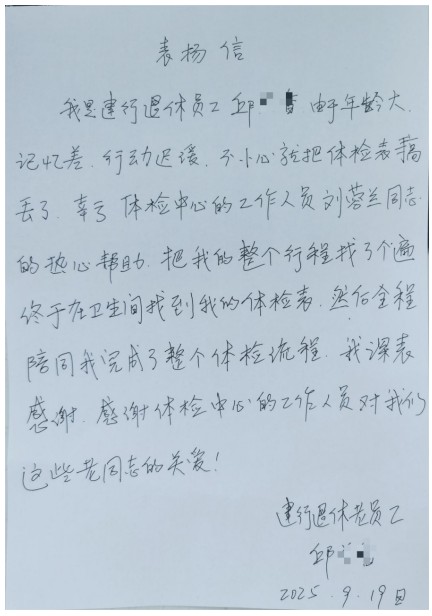 表扬信
我是建行退休员工邱 由于年龄大
记忆差、行动迟缓、不小心就把体检表搞
丢了，幸亏体检中心的工作人员刘蓉兰同志
的热心帮助，把我的整个行程找了个遍
终于在卫生间找到我的体检表，然后全程
陪同我完成了整个体检流程，我深表
感谢，感谢体检中心的工作人员对我们
这些老同志的关爱！
建行退休老员工
邱
2025.9.19日